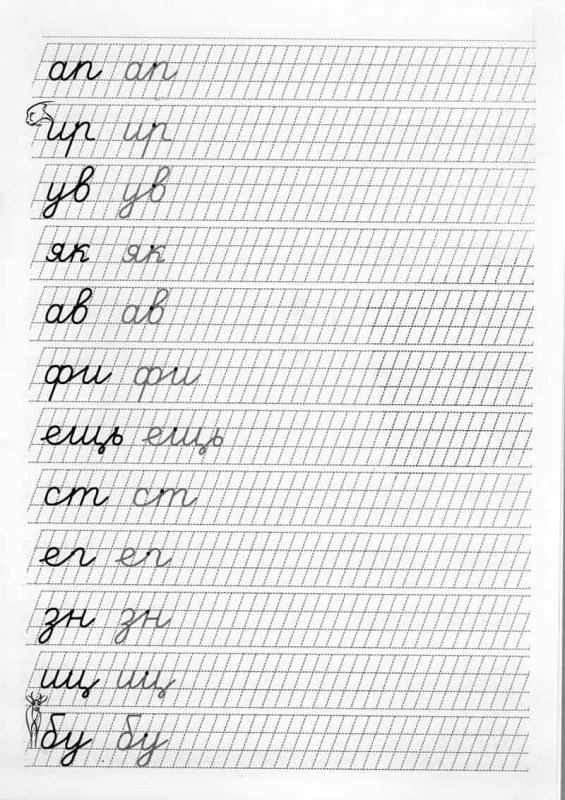 ап ап
ир ир
ув ув
як як
ав ав
фи фи
ещь ещь
ст ст
ег ег
зн зн
иц иц
бу бу